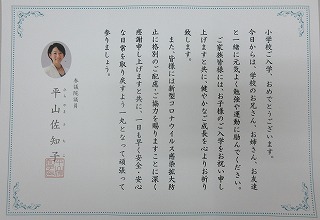 小学校ご入学、おめでとうございます。
今日からは、学校のお兄さん、お姉さん、お友達
と一緒に元気よく勉強や運動に励んでください。
ご家族皆様には、お子様のご入学をお祝い申し
上げますと共に、健やかなご成長を心よりお祈り
致します。
また、皆様には新型コロナウイルス感染拡大防
止に格別のご配慮、ご協力を賜りますことに深く
感謝申し上げますと共に、一日も早く安全・安心
な日常を取り戻すよう一丸となって頑張って
参りましょう。
参議院議員
平山佐知子